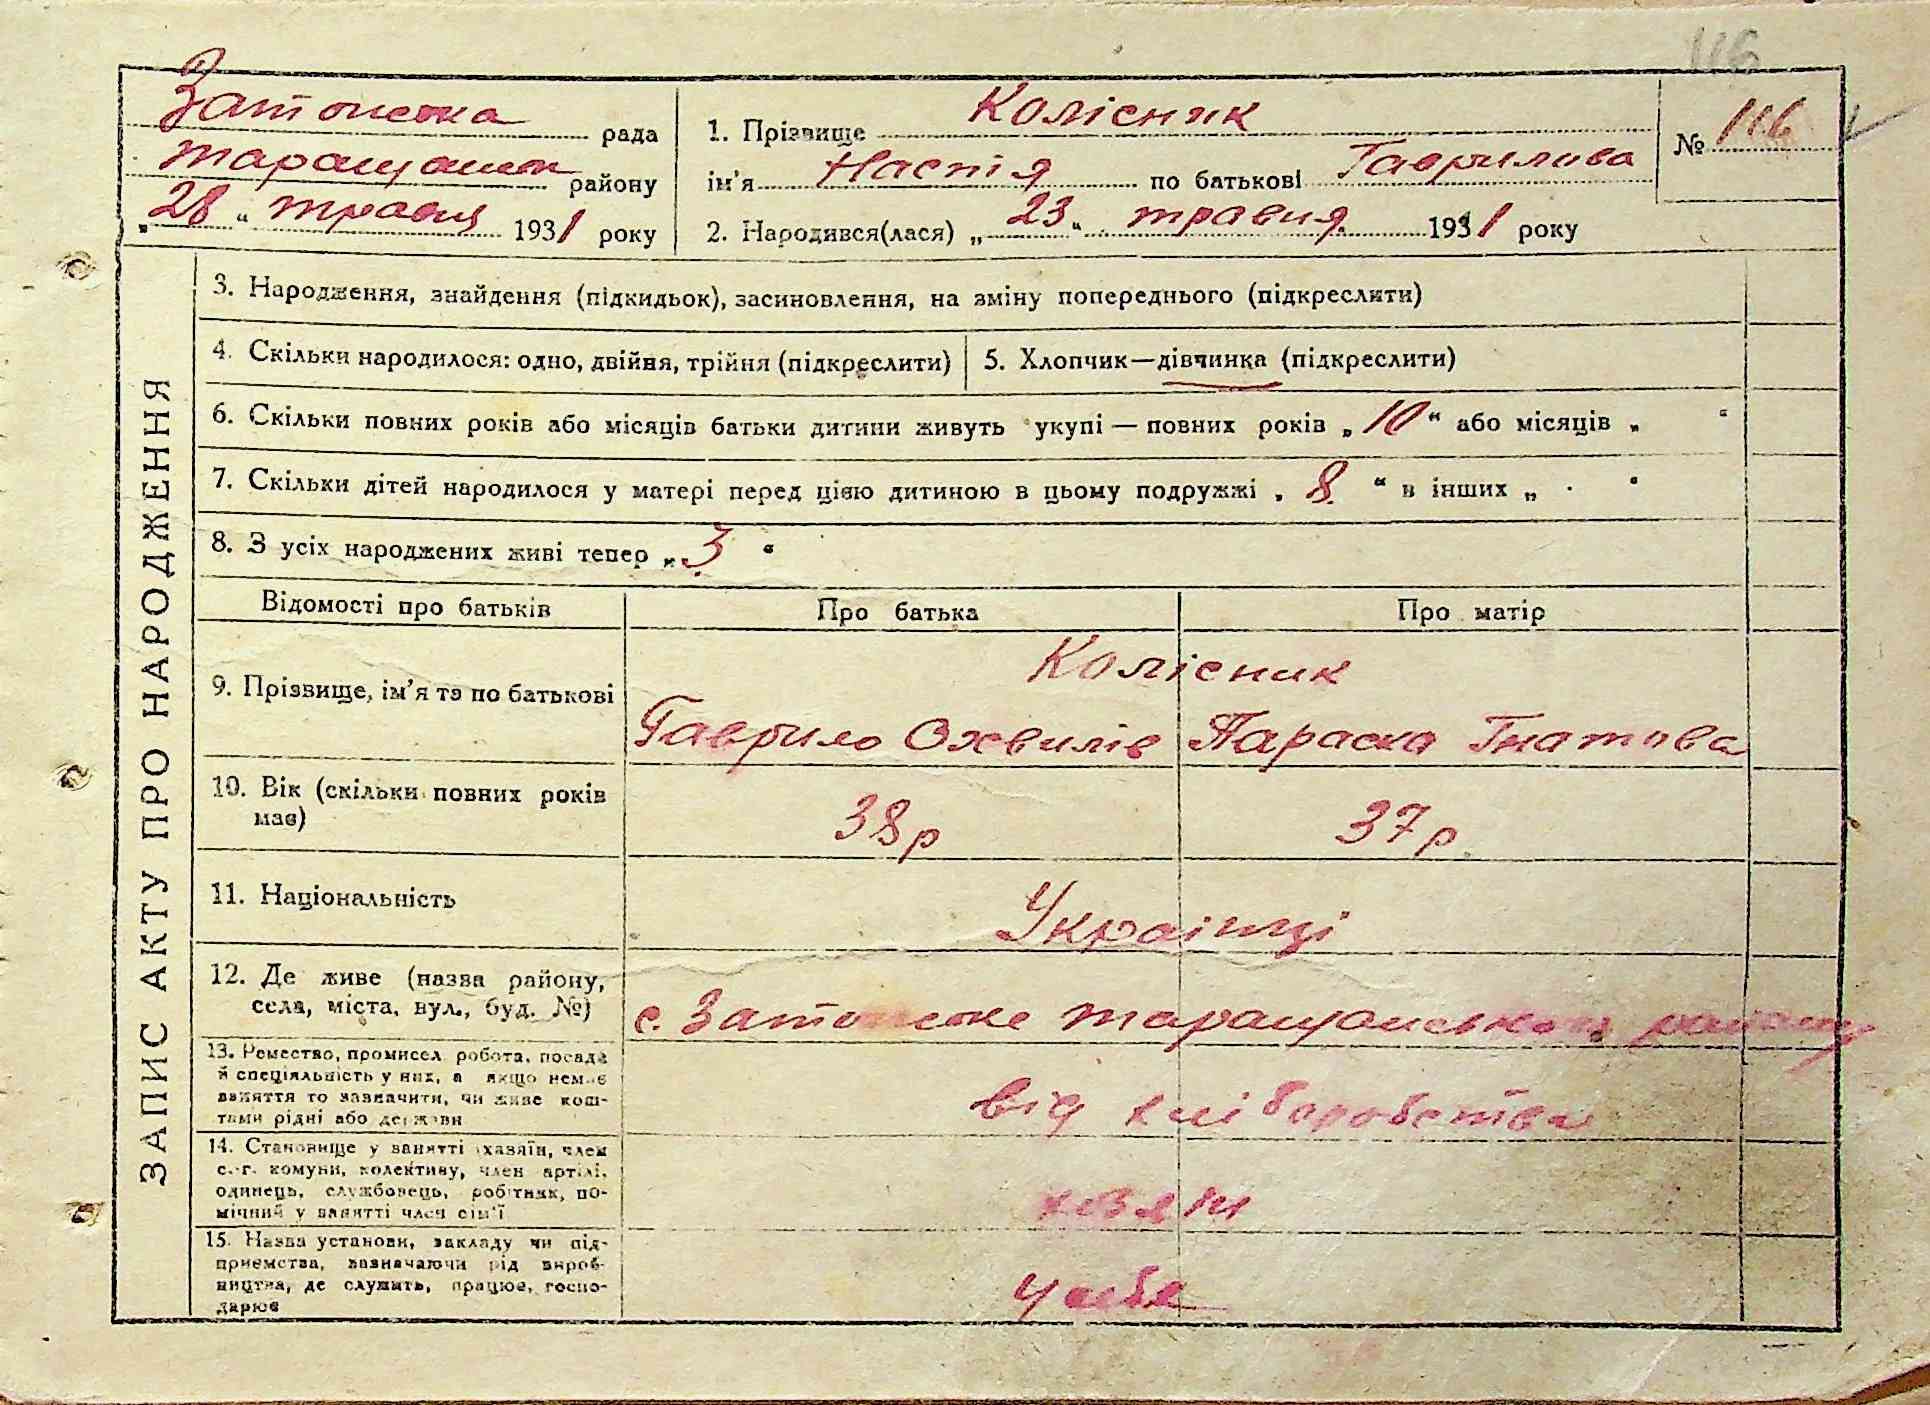 116
Затонська рада
таращанськ району
„28“ травня 1931 року
1. Прізвище Колісник
ім’я Настія по батькові Гаврилова
2. Народився(лася) „23“ травня 1931 року
№ 116
ЗАПИС АКТУ ПРО НАРОДЖЕННЯ
3. Народження, знайдення (підкидьок), засиновлення, на зміну попереднього (підкреслити)
4. Скільки народилося: одно, двійня, трійня (підкреслити)
5. Хлопчик—дівчинка (підкреслити)
6. Скільки повних років або місяців батьки дитини живуть укупі — повних років „10“ або місяців „ “
7. Скільки дітей народилося у матері перед цією дитиною в цьому подружжі „8“ в інших „ “
8. З усіх народжених живі тепер „3“
Відомості про батьків Про батька Про матір
9. Прізвище, ім’я та по батькові
Колісник
Гаврило Охвилів Параска Гнатова
10. Вік (скільки повних років
має)
38р 37р
11. Національність
Українці
12. Де живе (назва району,
села, міста, вул., буд. №)
с. Затонське таращанського району
13. Ремество, промисел, робота, посада
й спеціяльність у них, а якщо немає
заняття то зазначити, чи живе кош-
тами рідні або держави
від хліборобства
14. Становище у занятті (хазяїн, член
с.-г. комуни, колективу, член артілі,
одинець, службовець, робітник, по-
мічний у занятті член сім’ї
хазяїн
15. Назва установи, закладу чи під-
приємства, зазначаючи рід вироб-
ництва, де служить, працює, госпо-
дарює
у себе